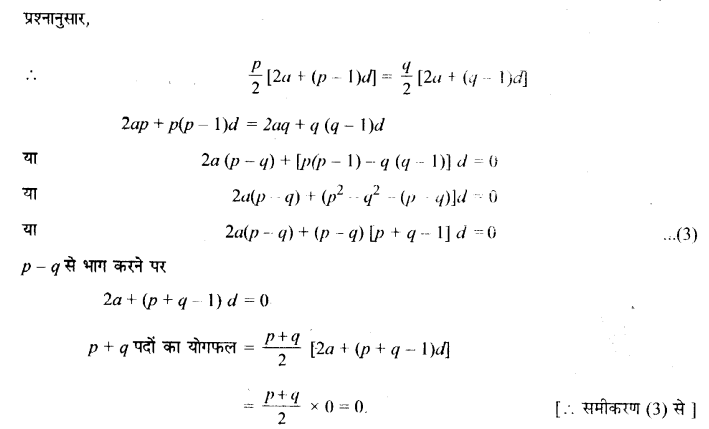 प्रश्नानुसार,
∴ p/2 [2a + (p – 1)d] = q/2 [2a + (q – 1)d]
2ap + p(p – 1)d = 2aq + q (q – 1)d
या 2a (p – q) + [p(p – 1) – q (q – 1)] d = 0
या 2a(p – q) + (p² – q² – (p – q)]d = 0
या 2a(p – q) + (p – q) [p + q – 1] d = 0 ...(3)
p – q से भाग करने पर
2a + (p + q – 1) d = 0
p + q पदों का योगफल = p+q/2 [2a + (p + q – 1)d]
= p+q/2 × 0 = 0. [∴ समीकरण (3) से ]